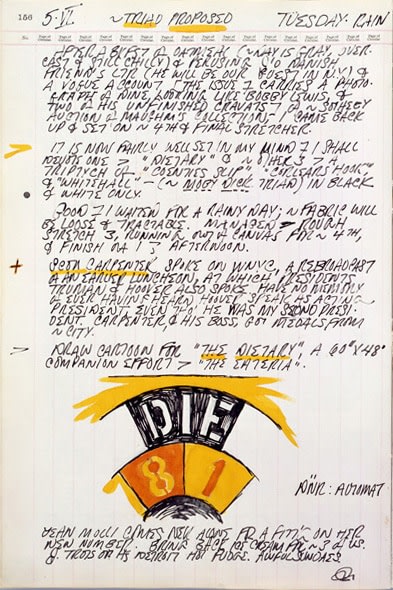 156 5·VI. ~TRIAD PROPOSED TUESDAY·RAIN
AFTER A OF OATMEAL (~ DAY IS GRAY, OVER-
CAST & STILL CHILLY) & PERUSING DANISH
FRIEND'S LTR (HE WILL BE OUR GUEST IN NY) &
A VOGUE ACCOUNT (THE ISSUE CARRIES A PHOTO-
OF MINE LOOKING LIKE BOBBY LEWIS, &
TWO OF HIS UNFINISHED CRAVATS) OF ~ SOTHEBY
AUCTION OF MAUGHM'S COLLECTION I CAME BACK
UP & SET ON ~ 4TH & FINAL STRETCHER.
IT IS NOW FAIRLY WELL SET IN MY MIND I SHALL
DEVOTE ONE > "DIETARY" & ~ OTHER 3 > A
TRIPTYCH OF "COENTIES SLIP" "CORLEARS HOOK"
& "WHITEHALL" — (~ MOBY DICK TRIAD) IN BLACK
& WHITE ONLY.
GOOD I WAITED FOR A RAINY DAY; ~ FABRIC WILL
BE LOOSE & TRACTABLE. MANAGED > ROUGH
STRETCH & RUNNING OUT OF CANVAS FOR ~ 4TH,
& FINISH OFF 1 AFTERNOON.
SCOTT CARPENTER SPOKE ON WNYC, A REBROADCAST
OF AN EARLIER LUNCHEON AT WHICH PRESIDENTS
TRUMAN & HOOVER ALSO SPOKE. HAVE NO MEMORY
OF EVER HAVING HEARD HOOVER SPEAK AS ACTING
PRESIDENT, EVEN THO' HE WAS MY SECOND PRESI-
DENT. CARPENTER & HIS BOSS GOT MEDALS FROM
~ CITY.
> DRAW CARTOON FOR "THE DIETARY", A 60" X 48"
COMPANION EFFORT > "THE EATERIA".
DIE
8 1
DINR: AUTOMAT
JEAN COMES ALONG FOR A FITT'~ ON HER
NEW NUMBER. BRING BACK ICE CREAM FOR ~ 3 OF US.
& TROIS OF US DETROIT HOT FUDGE. AWFUL SUNDAES